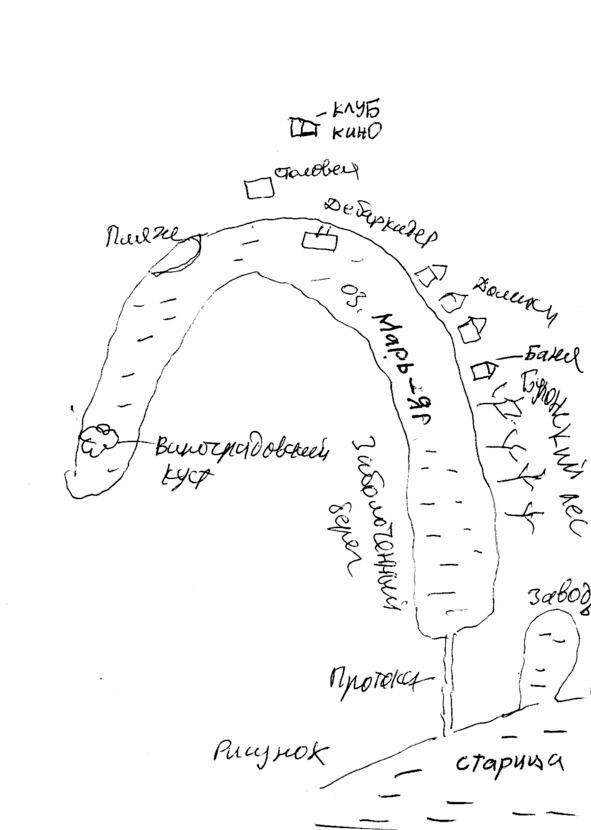 КЛУБ
КИНО
Столовая
Дебаркадер
Пляж
Домики
оз. Марь-Яг
Баня
лес
Виноградовский
куст
Заболоченный
берег
Заводь
Протока
Рисунок
старица